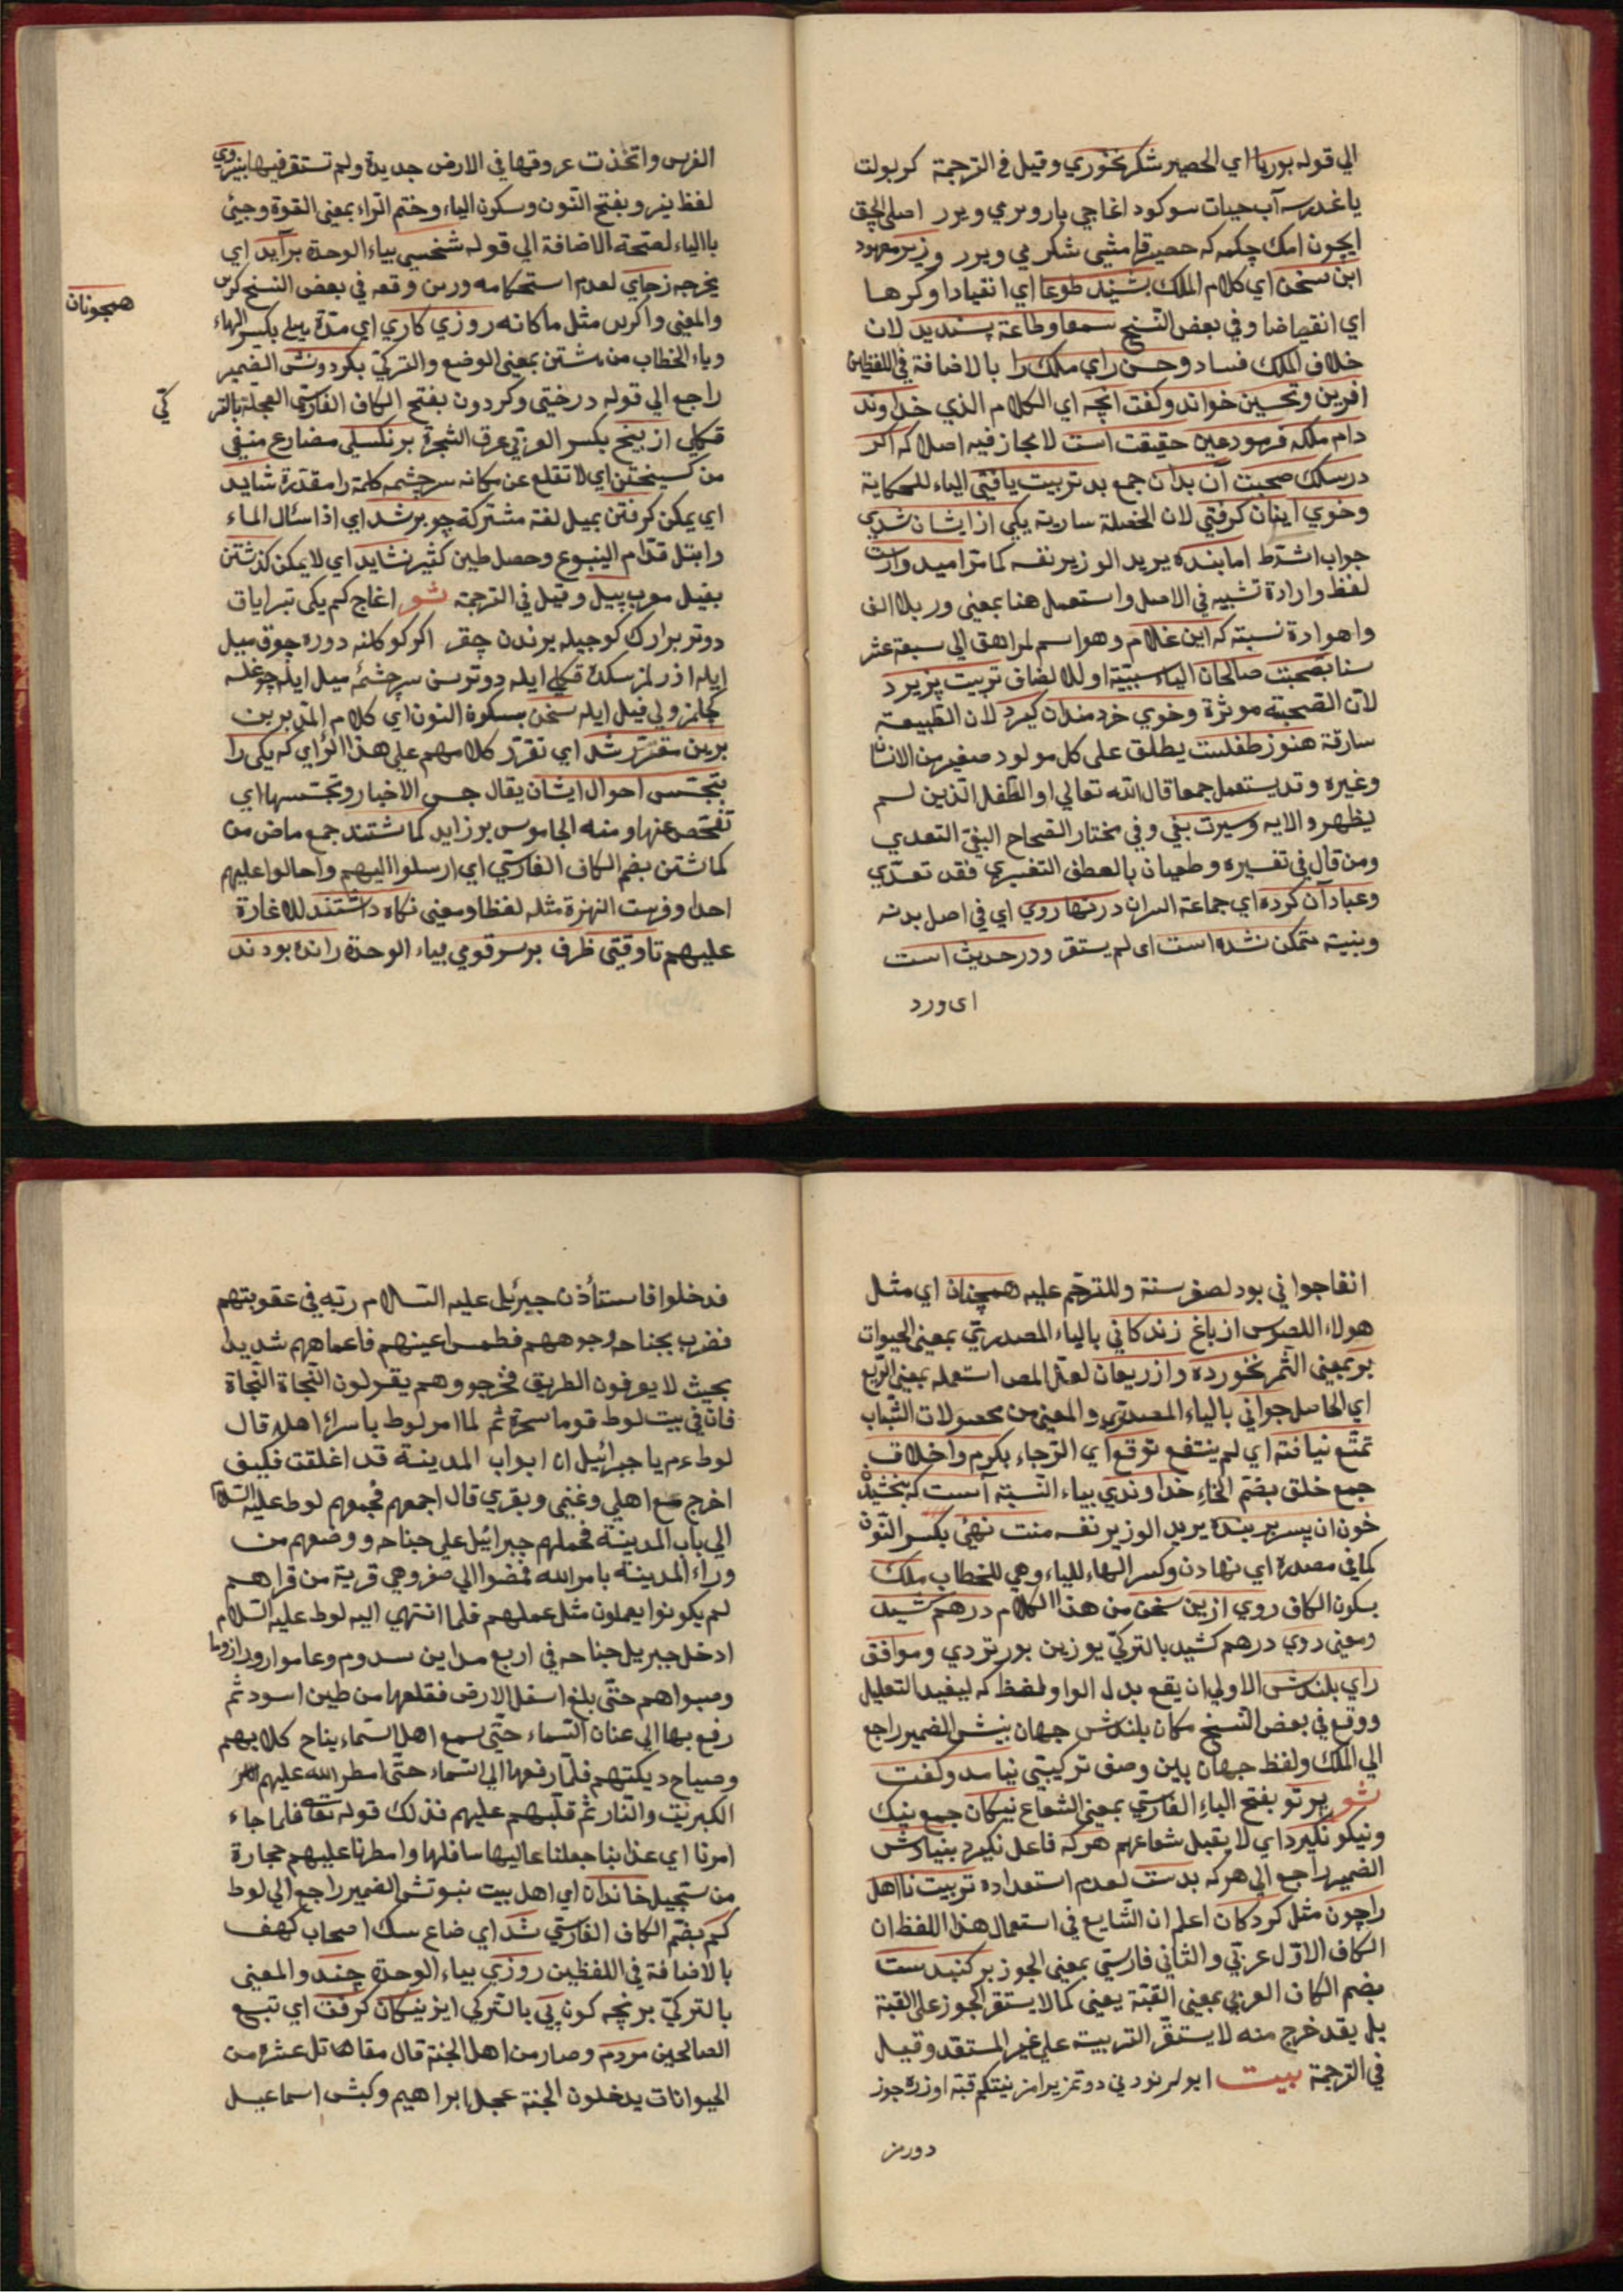 الي قوله بوريا اي الحصير شكر نخوري وقيل في الترجمة كر بولت
ياغدرسه آب حيات سوكود اغاجي بار ويرمي ويرر اصلي الچق
ايچون امك چكمه كه حصير قامشي شكر مي ويرر وزير معهود
ابن سخن اي كلام الملك بشنيد طوعا اي انقيادا وكرها
اي انقباضا وفي بعض النسخ سمعا وطاعة پسنديد لان
خلاف الملك فساد وحسن راي ملك را بالاضافة في اللفظين
افرين وتحسين خواند وكفت انچه اي الكلام الذي خداوند
دام ملكه فرمود عين حقيقت است لا مجاز فيه اصلا كه اكر
در سلك صحبت آن بدان جمع بد تربيت يافتي الياء للحكاية
وخوي اينان كرفتي لان الخصلة سارية يكي از ايشان شدي
جواب الشرط اما بنده يريد الوزير نفسه كما ترا اميدوارست
لفظ وار ادة تشبيه في الاصل واستعمل هنا بمعني ور بلا الف
واهو ادة نسبته كه اين غلام وهو اسم لمراهق الي سبعة عشر
سنا بصحبت صالحان الياء سببية او للالصاق تربيت پزيرد
لان الصحبة موثرة وخوي خردمندان كيرد لان الطبيعة
سارقة هنوز طفلست يطلق علي كل مولود صغير من الانسان
وغيره وقد يستعمل جمعا قال الله تعالي او الطفل الذين لم
يظهروا الايه وسيرت بغي وفي مختار الصحاح البغي التعدي
ومن قال في تفسيره وطغيان بالعطف التفسيري فقد تعدّي
وعناد آن كرده اي جماعة السران در نهاد وي اي في اصل بدنه
وبنيته متمكن نشده است اى لم يستقر ودر حديث است
اى ورد
الغرس واتخذت عروقها في الارض جديدة ولم تستقر فيها بنيروي
لفظ نيرو بفتح النون وسكون الياء وختم الراء بمعني القوة وجئ
بالياء لصحة الاضافة الي قوله شخصي بياء الوحدة برآيد اي
يخرجه زجاي لعدم استحكامه ورس وقعه في بعض النسخ كرس
والمعني واكرس مثل ما كانه روزي كاري اي مدة يهلي بكسر الهاء
وباء الخطاب من هشتن بمعني الوضع والتركيّ بكردونش الضمير
راجع الي قوله درختي وكردون بفتح الكاف الفارسي العجلة بالتر
كي
قكلي از بيخ بكسر العربي عرق الشجرة برنكسلي مضارع منفي
من كسيختن اي لا تقلع عن مكانه سرچشمه كلمة را مقدرة شايد
اي يمكن كرفتن بميل لغة مشتركة چو پر شد اي اذا سال الماء
وابتل قدام الينبوع وحصل طين كثير نشايد اي لا يمكن كذشتن
بفيل معرب پيل وقيل في الترجمة شو اغاج كم يكى تبراياق
دوتر برارك كوجيله يرندن چقر اكر كوكلنه دوره چوق ميل
ايله اذرلمز سكده قكلي ايله دوتوسن سرچشمه ميل ايله چوغله
كجلمز ولي فيل ايله سخن بسكون النون اي كلام المتدبرين
برين مقرر شد اي تقرر كلامهم علي هذا الراي كه يكي را
بتجسس احوال ايشان يقال جس الاخبار وتجسسها اي
تفحص عنها ومنه الجاسوس بوزايد كماشتند جمع ماض من
كماشتن بضم الكاف الفارسي اي ارسلوا اليهم واحالوا عليهم
احدا وفرصت النهزة مثله لفظا ومعني نكاه داشتند للاغارة
عليهم تا وقتي ظرف برسر قومي بياء الوحدة رانده بودند
همچونان
انفا جواني بود لصغر سنة وللترحم عليه همچنان اي مثل
هولاء اللصوص از باغ زندكاني بالياء المصدريّ بمعني الحيوات
بر بمعني الثمر نخورده واز ريعان لعل المص استعمله بمعني الريع
اي الحاصل جواني بالياء المصدري والمعني من محصولات الشباب
تمتع نيافته اي لم ينتفع توقع اي الرجاء بكرم واخلاق
جمع خلق بضم الخاء خداوندي بياء النسبة آست كه ببخشيدن
خون ان پسر بر بنده يريد الوزير نفسه منت نهئ بكسر النون
كما في مصدره اي نهادن وكسر الهاء للياء وهي للخطاب ملك
بسكون الكاف روي ازين سخن من هذا الكلام درهم كشيد
ومعني روي درهم كشيد بالتركيّ يوزين بورتردي وموافق
راي بلندش الاولي ان يقع بدل الواو لفظ كه ليفيد التعليل
ووقع في بعض النسخ مكان بلندش جهان بينش الضمير راجع
الي الملك ولفظ جهان بين وصف تركيبي نيامد وكفت
شو پرتو بفتح الباء الفارسي بمعني الشعاع نيكان جمع نيك
ونيكو نكيرد اي لا يقبل شعاعهم هركه فاعل نكيرد بنيادش
الضمير راجع الي هركه بدست لعدم استعداده تربيت نا اهل
را چون مثل كردكان اعلم ان الشايع في استعمال هذا اللفظ ان
الكاف الاول عربي والثاني فارسي بمعني الجوز بر كنبدست
بضم الكان العربي بمعني القبّة يعني كما لا يستقر الجوز علي القبة
بل يقد خرج منه لا يستقر التربية علي غير المستقد وقيل
في الترجمة بيت ابو لرنوديني دوتمز يرامز نيتكم قبة اوزره جوز
دورمز
فدخلوا فاستأذن جبرئيل عليه السلام ربه في عقوبتهم
فضرب بجناحه وجوههم فطمس اعينهم فاعماهم شديدا
بحيث لا يعرفون الطريق فخرجوا وهم يقولون النجاة النجاة
فان في بيت لوط قوما سحرة ثم لما امر لوط باسراء اهله قال
لوط عم يا جبرائيل ان ابواب المدينة قد اغلقت فكيف
اخرج مع اهلي وغنمي وبقري قال اجمعهم فجمعهم لوط عليه السلام
الي باب المدينة فحملهم جبرائيل علي جناحه ووضعهم من
وراء المدينة بامر الله فمضوا الي صغر وهي قرية من قراهم
لم يكونوا يعملون مثل عملهم فلما انتهي اليه لوط عليه السلام
ادخل جبريل جناحه في اربع مداين سدوم وعاموا ورادوما
وصبواهم حتى بلغ اسفل الارض فقلعها من طين اسود ثم
رفع بها الي عنان السماء حتي سمع اهل السماء نباح كلابهم
وصياح ديكتهم فلما رفعها الي السماء حتي امطر الله عليهم
الكبريت والنار ثم قلبهم عليهم فذلك قوله تعالي فلما جاء
امرنا اي عذابنا جعلنا عاليها سافلها وامطرنا عليهم حجارة
من سجيل خاندان اي اهل بيت نبوتش الضمير راجع الي لوط
كم بضم الكاف الفارسي شد اي ضاع سك اصحاب كهف
بالاضافة في اللفظين روزي بياء الوحدة چند والمعني
بالتركيّ برنچه كون پي بالتركي ايز نيكان كرفت اي تبع
الصالحين مردم وصار من اهل الجنة قال مقاتل عشرة من
الحيوانات يدخلون الجنة عجل ابراهيم وكبش اسماعيل